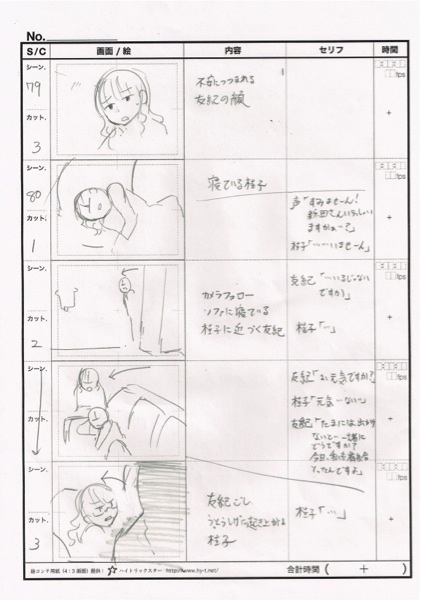 No.
S/C
画面 / 絵
内容
セリフ
時間
シーン.
79
カット.
3
不安につつまれる
友紀の顔
fps
+
シーン.
80
カット.
1
寝ている桂子
声「すみませーん!
新田さんいらっしゃい
ますかぁー?」
桂子「……いませーん」
fps
+
シーン.
カット.
2
カメラフォロー
ソファに寝ている
桂子に近づく友紀
友紀「……いるじゃない
ですか」
桂子「…」
fps
+
シーン.
カット.
友紀「お元気ですか?
桂子「元気…ないー」
友紀「たまには出かけ
ないとー一緒に
どうですか?
fps
+
シーン.
カット.
3
友紀ごし
うっとうしげに起き上がる
桂子
桂子「……」
fps
+
絵コンテ用紙(4:3画面)提供: ハイトリックスター http://www.hy-t.net/
合計時間 ( + )